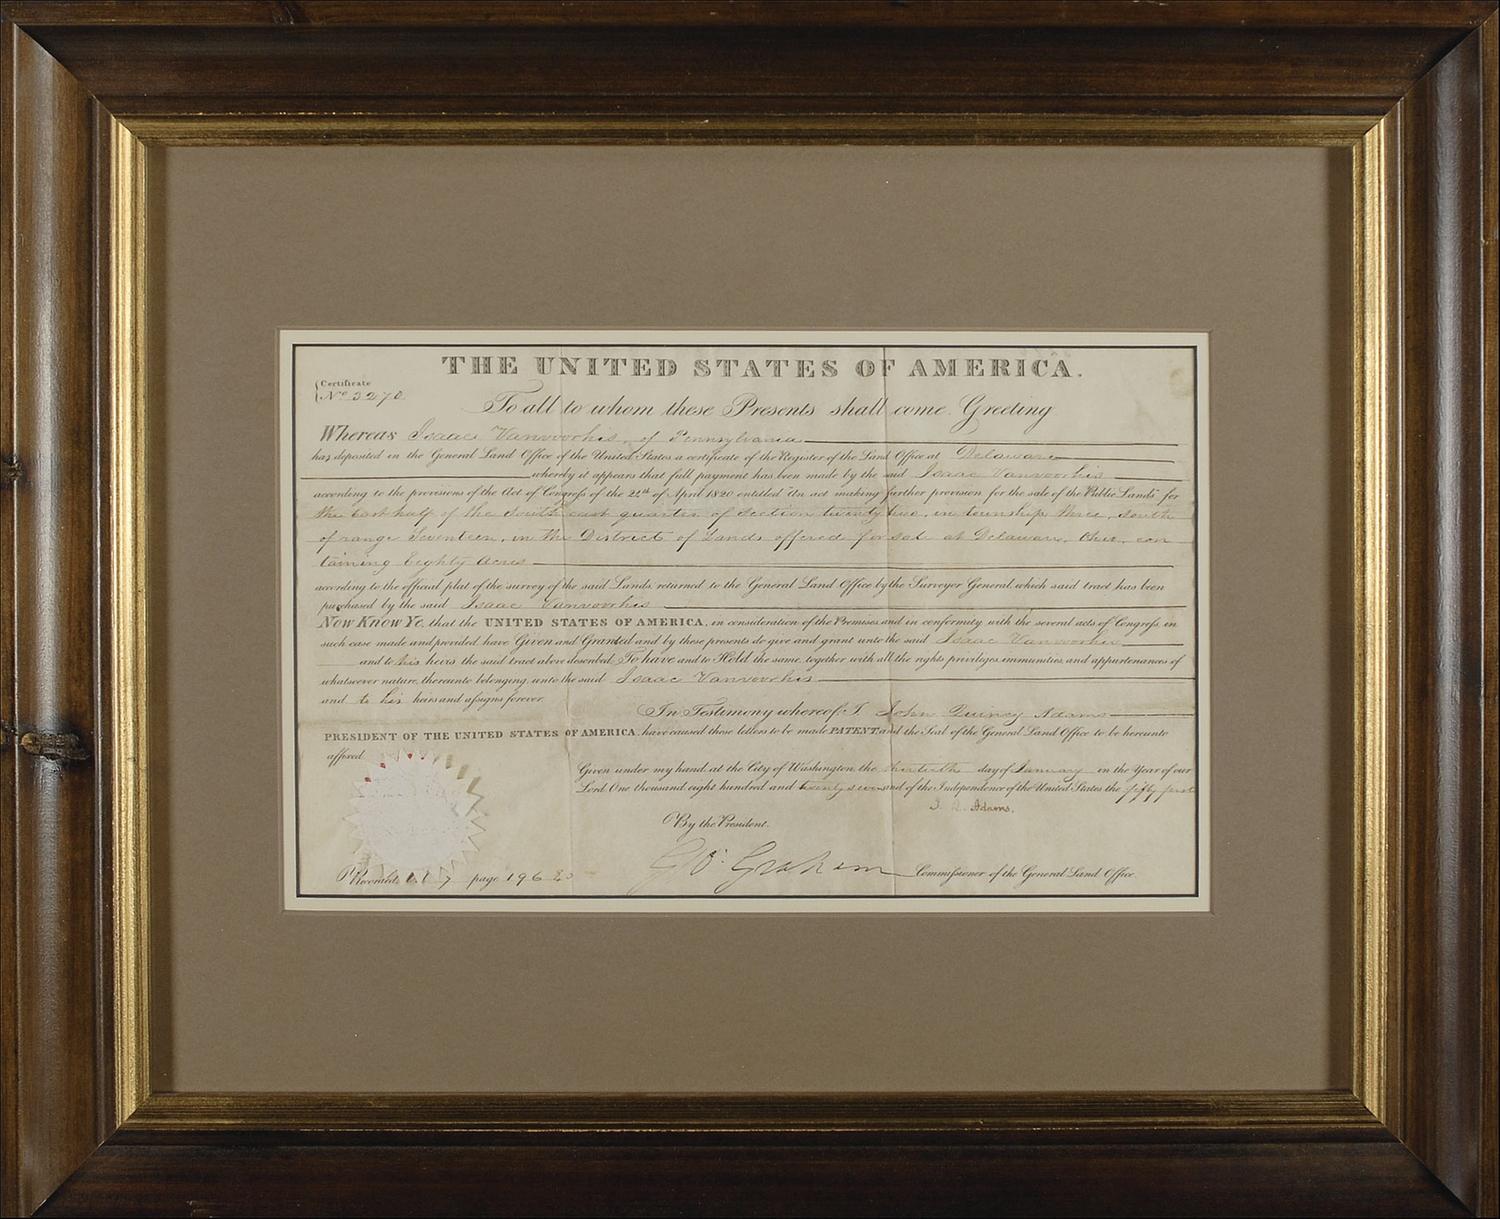 THE UNITED STATES OF AMERICA.
Certificate
No. 3270
To all to whom these Presents shall come Greeting
Whereas Isaac Vanvoorhis, of Pennsylvania
has deposited in the General Land Office of the United States a certificate of the Register of the Land Office at Delaware
whereby it appears that full payment has been made by the said Isaac Vanvoorhis
according to the provisions of the Act of Congress of the 24th of April 1820 entitled "An act making further provision for the sale of the Public Lands" for
the East half of the South east quarter of Section twenty two, in township three, south
of range Seventeen, in the District of Lands offered for sale at Delaware, Ohio, con
taining Eighty Acres
according to the official plat of the survey of the said Lands, returned to the General Land Office by the Surveyor General, which said tract has been
purchased by the said Isaac Vanvoorhis
Now Know Ye, that the UNITED STATES OF AMERICA, in consideration of the Premises, and in conformity with the several acts of Congress, in
such case made and provided, have Given and Granted and by these presents do give and grant unto the said Isaac Vanvoorhis
and to his heirs the said tract above described. To have and to Hold the same, together with all the rights privileges immunities and appurtenances of
whatsoever nature, thereunto belonging, unto the said Isaac Vanvoorhis
and to his heirs and assigns forever.
In Testimony whereof, I John Quincy Adams
PRESIDENT OF THE UNITED STATES OF AMERICA, have caused these letters to be made PATENT, and the Seal of the General Land Office to be hereunto
affixed.
Given under my hand at the City of Washington the thirtieth day of January in the Year of our
Lord One thousand eight hundred and twenty seven and of the Independence of the United States the fifty first
J. Q. Adams.
By the President.
G W. Graham Commissioner of the General Land Office.
Recorded 7 page 196